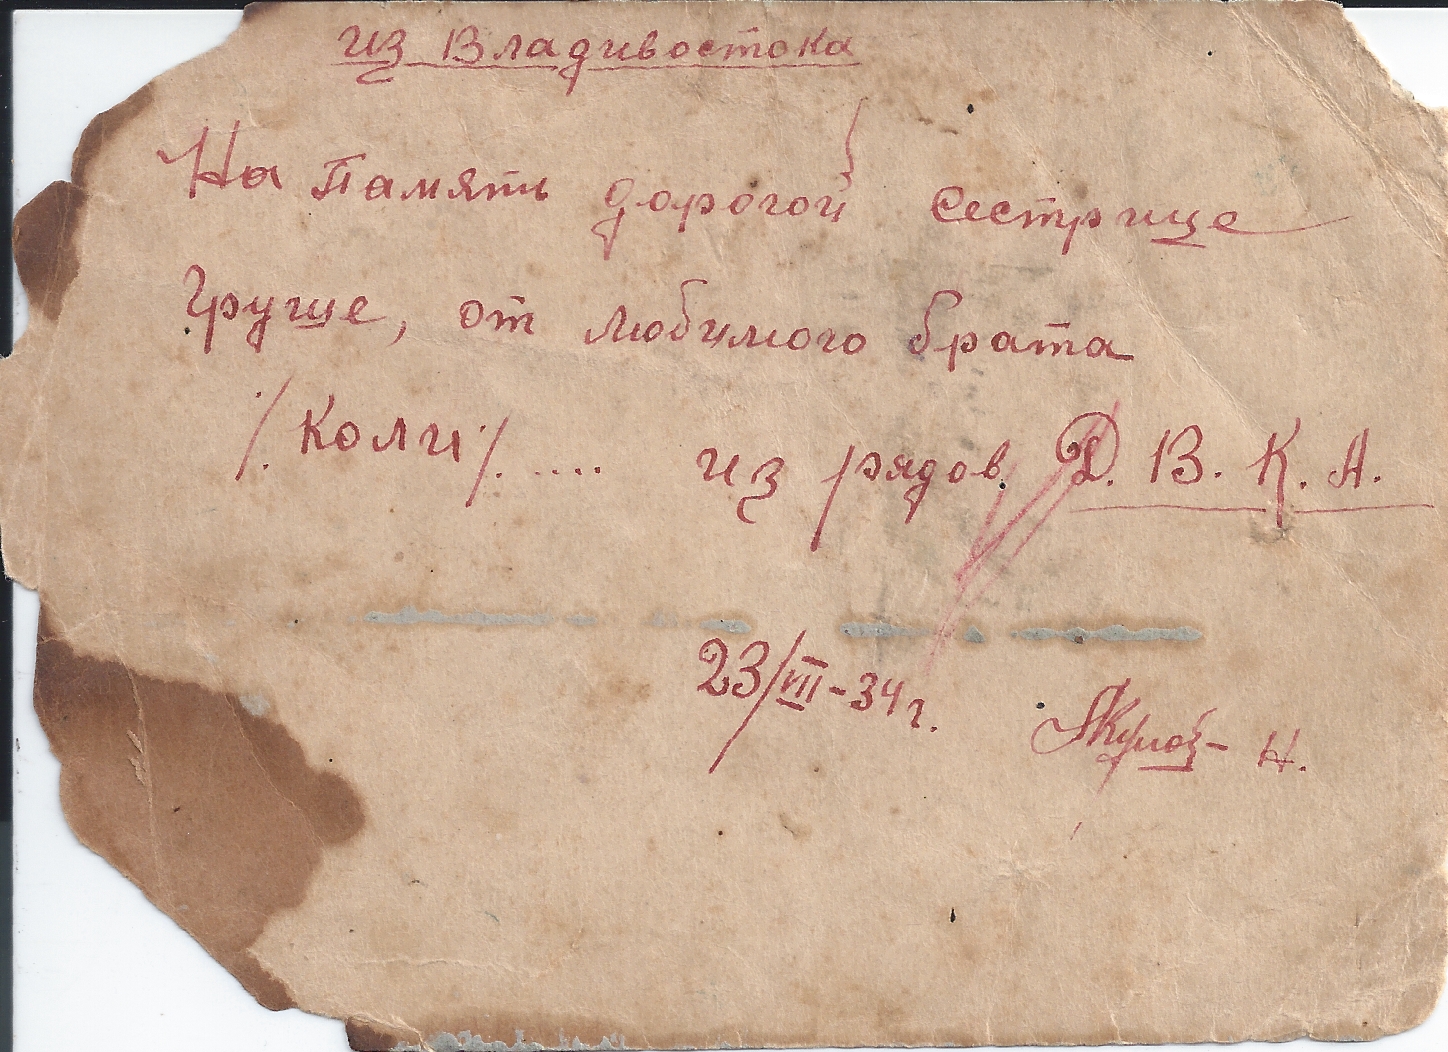 из Владивостока
На память дорогой сестрице
Груше, от любимого брата
/.Коли/. .... из рядов Д. В. К. А.
23/VIII-34 г.
Н.